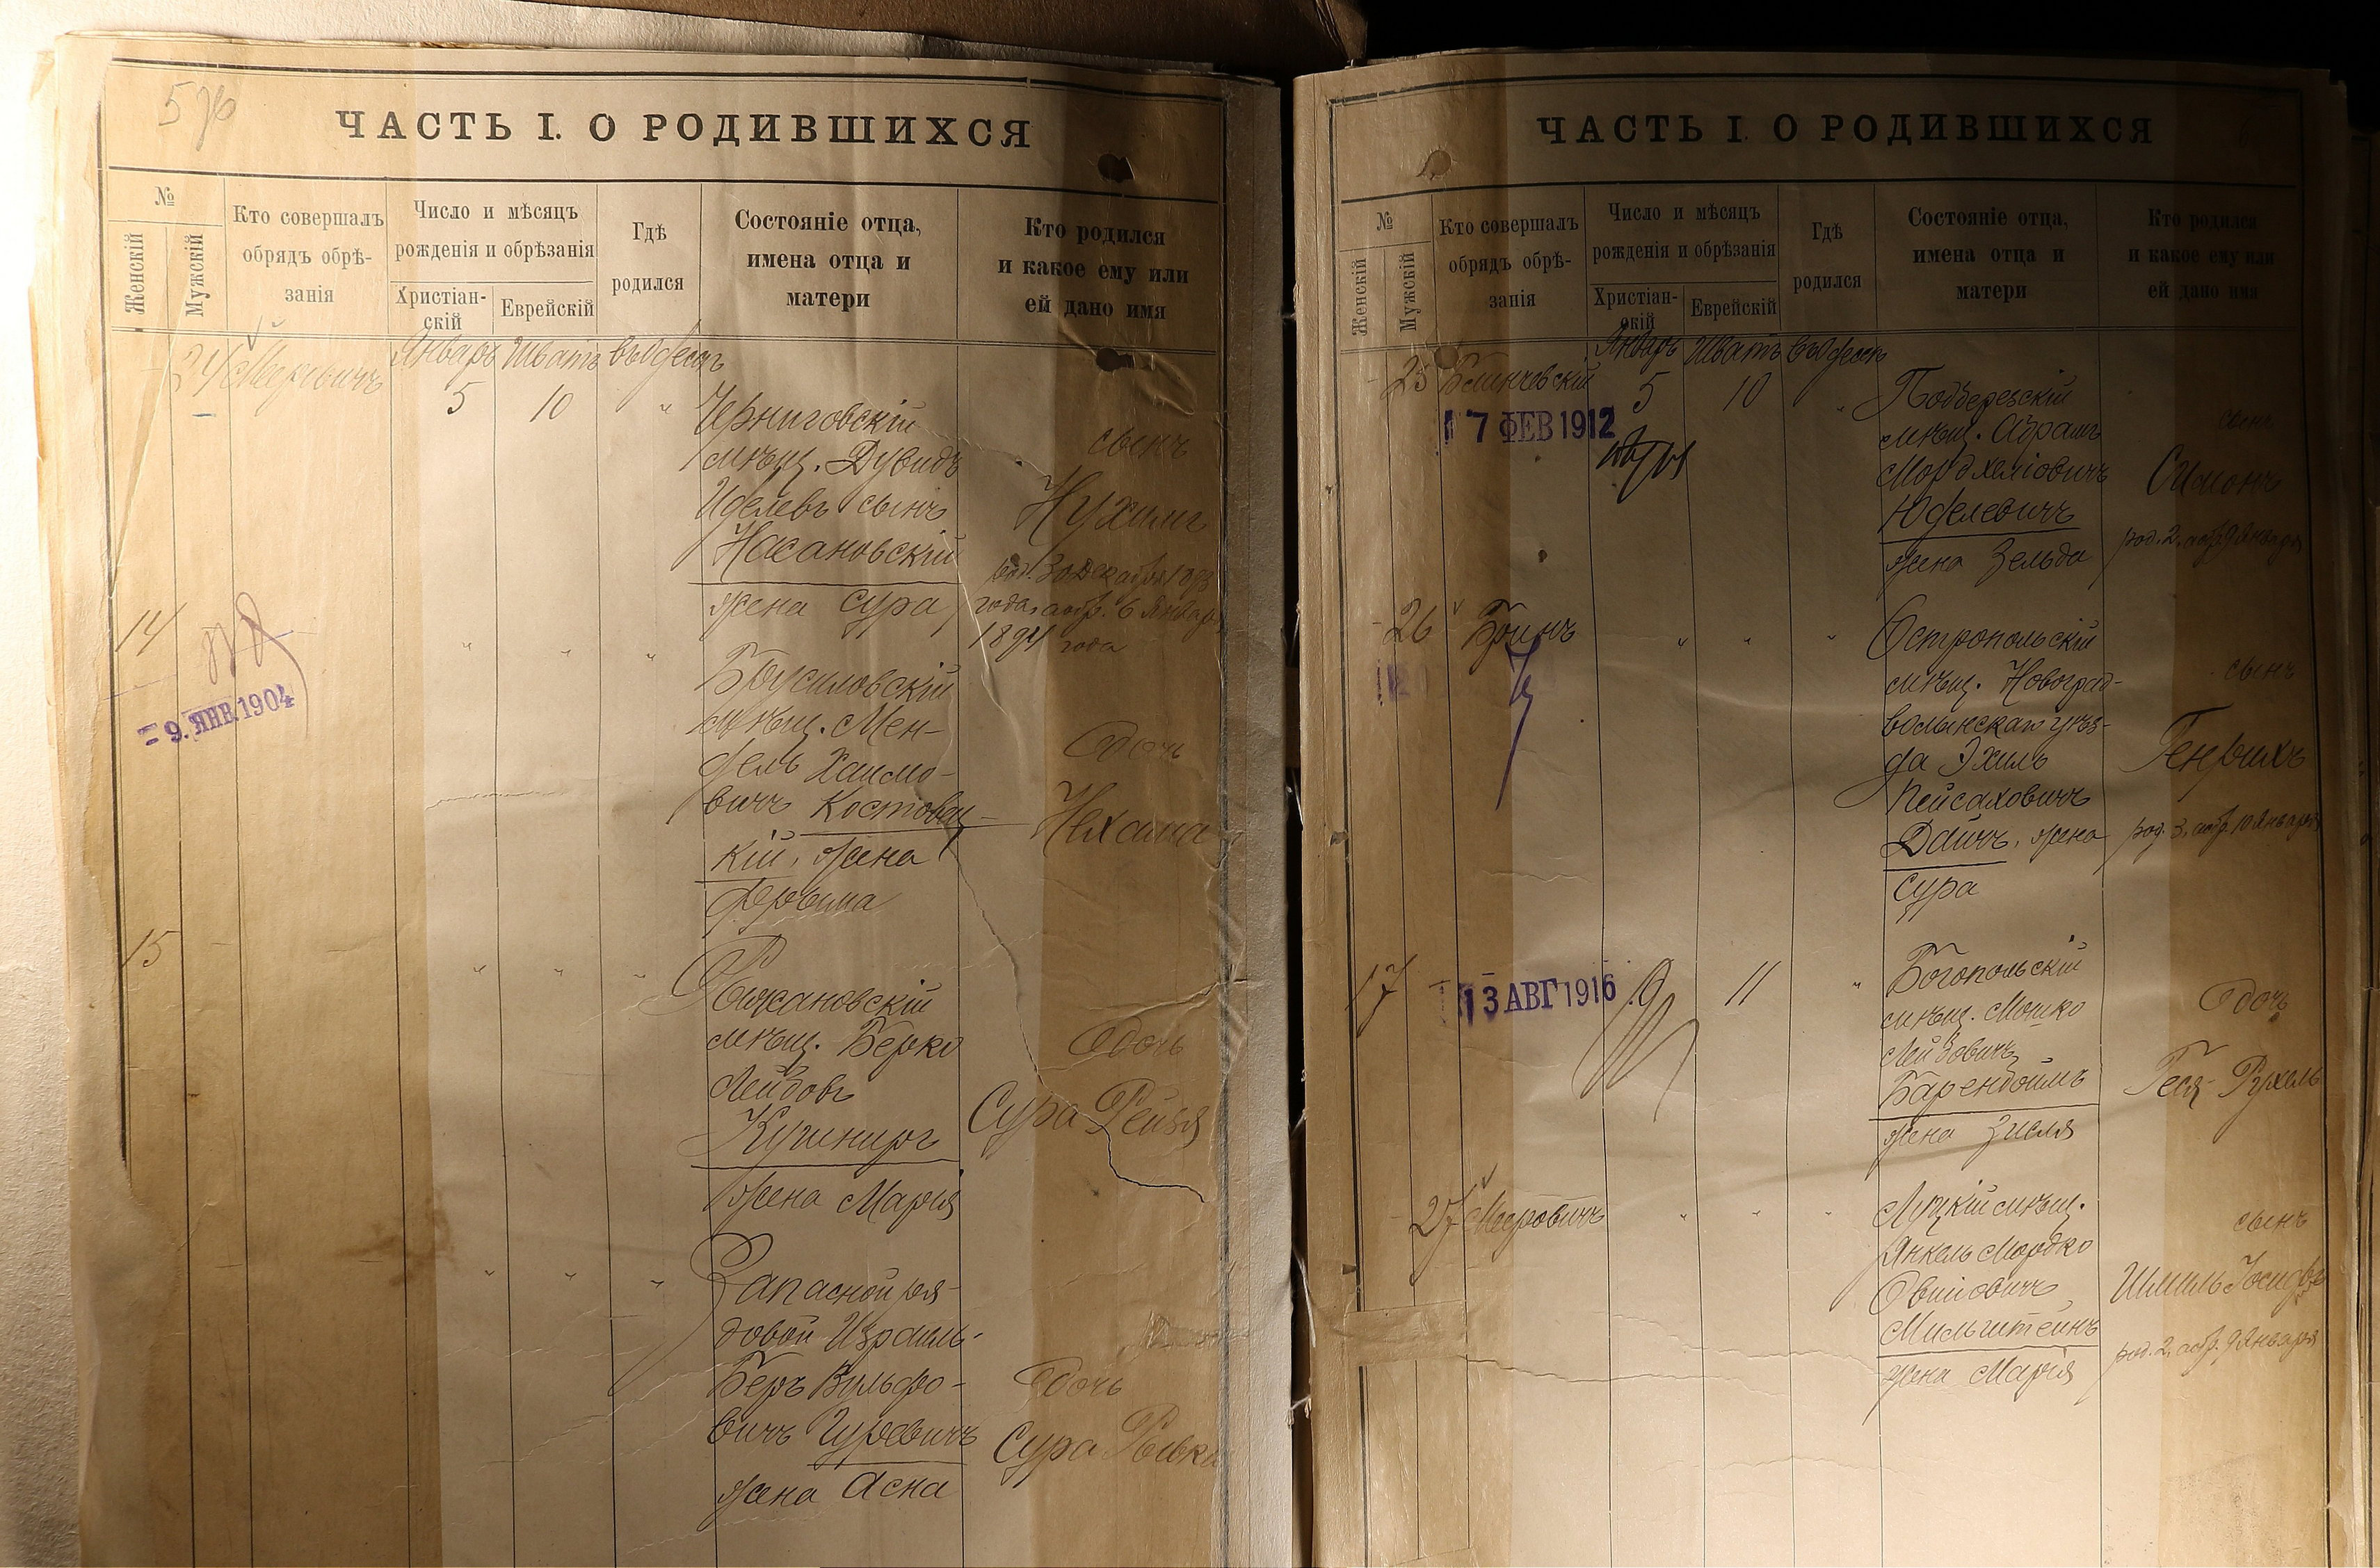 ЧАСТЬ I. О РОДИВШИХСЯ
№
Женскій
Мужскій
Кто совершалъ
обрядъ обрѣ-
занія
Число и мѣсяцъ
рожденія и обрѣзанія
Христіан-
скій
Еврейскій
Гдѣ
родился
Состояніе отца,
имена отца и
матери
Кто родился
и какое ему или
ей дано имя
24 Меровичъ Январь Шватъ въ Одессѣ
5 10 "
Черниговскій
мѣщ. Дувидъ
Иделевъ сынъ
Насановскій
жена Сура
сынъ
Нухимъ
род. 30 Декабря 1893
года, обр. 6 Января
1894 года
14 " " "
= 9. ЯНВ. 1904
Брусиловскій
мѣщ. Мен-
дель Хаимо-
вичъ Костовец-
кій, жена
Фрейма
дочь
Нехама
15 " " "
Ряжановскій
мѣщ. Берко
Лейбовъ
Кушниръ
жена Марія
дочь
Сура Рейзя
" " "
Запасной ря-
довой Израиль-
Беръ Вульфо-
вичъ Гуревичъ
жена Асна
дочь
Сура Ривка
ЧАСТЬ I. О РОДИВШИХСЯ
№
Женскій
Мужскій
Кто совершалъ
обрядъ обрѣ-
занія
Число и мѣсяцъ
рожденія и обрѣзанія
Христіан-
скій
Еврейскій
Гдѣ
родился
Состояніе отца,
имена отца и
матери
Кто родился
и какое ему или
ей дано имя
25 Январь Шватъ въ Одессѣ
5 10 "
17 ФЕВ 1912
Подберезскій
мѣщ. Абрамъ
Мордхеліовичъ
Юделевичъ
жена Зельда
сынъ
Симонъ
род. 2, обр. 9 Января
26 Бринъ " " "
Остропольскій
мѣщ. Новоград-
волынскаго уѣз-
да Эхиль
Пейсаховичъ
Дайчъ, жена
Сура
сынъ
Генрихъ
род. 3, обр. 10 Января
17 11 "
13 АВГ 1916
Богопольскій
мѣщ. Мошко
Лейбовичъ
Баренбоймъ
жена Зисля
дочь
Геся-Рухель
27 Мееровичъ " " "
Луцкій мѣщ.
Янкель Мордко
Овшіовичъ
Мильштейнъ
жена Марія
сынъ
Шмиль Іосифъ
род. 2, обр. 9 Января